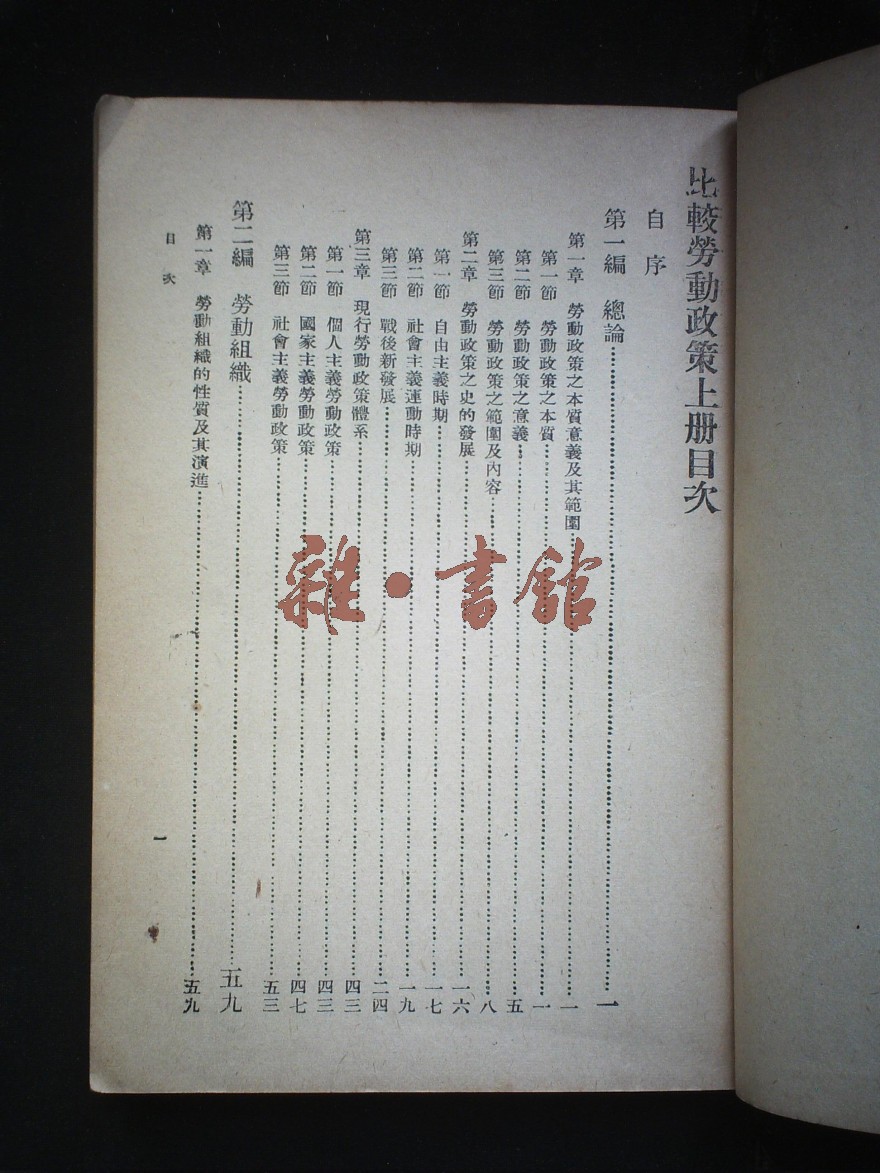 比較勞動政策上册目次
自序
第一編 總論……一
第一章 勞動政策之本質意義及其範圍……一
第一節 勞動政策之本質……一
第二節 勞動政策之意義……五
第三節 勞動政策之範圍及內容……八
第二章 勞動政策之史的發展……一六
第一節 自由主義時期……一七
第二節 社會主義運動時期……一九
第三節 戰後新發展……二四
第三章 現行勞動政策體系……四三
第一節 個人主義勞動政策……四三
第二節 國家主義勞動政策……四七
第三節 社會主義勞動政策……五三
第二編 勞動組織……五九
第一章 勞動組織的性質及其演進……五九
目次
一
雜·書館